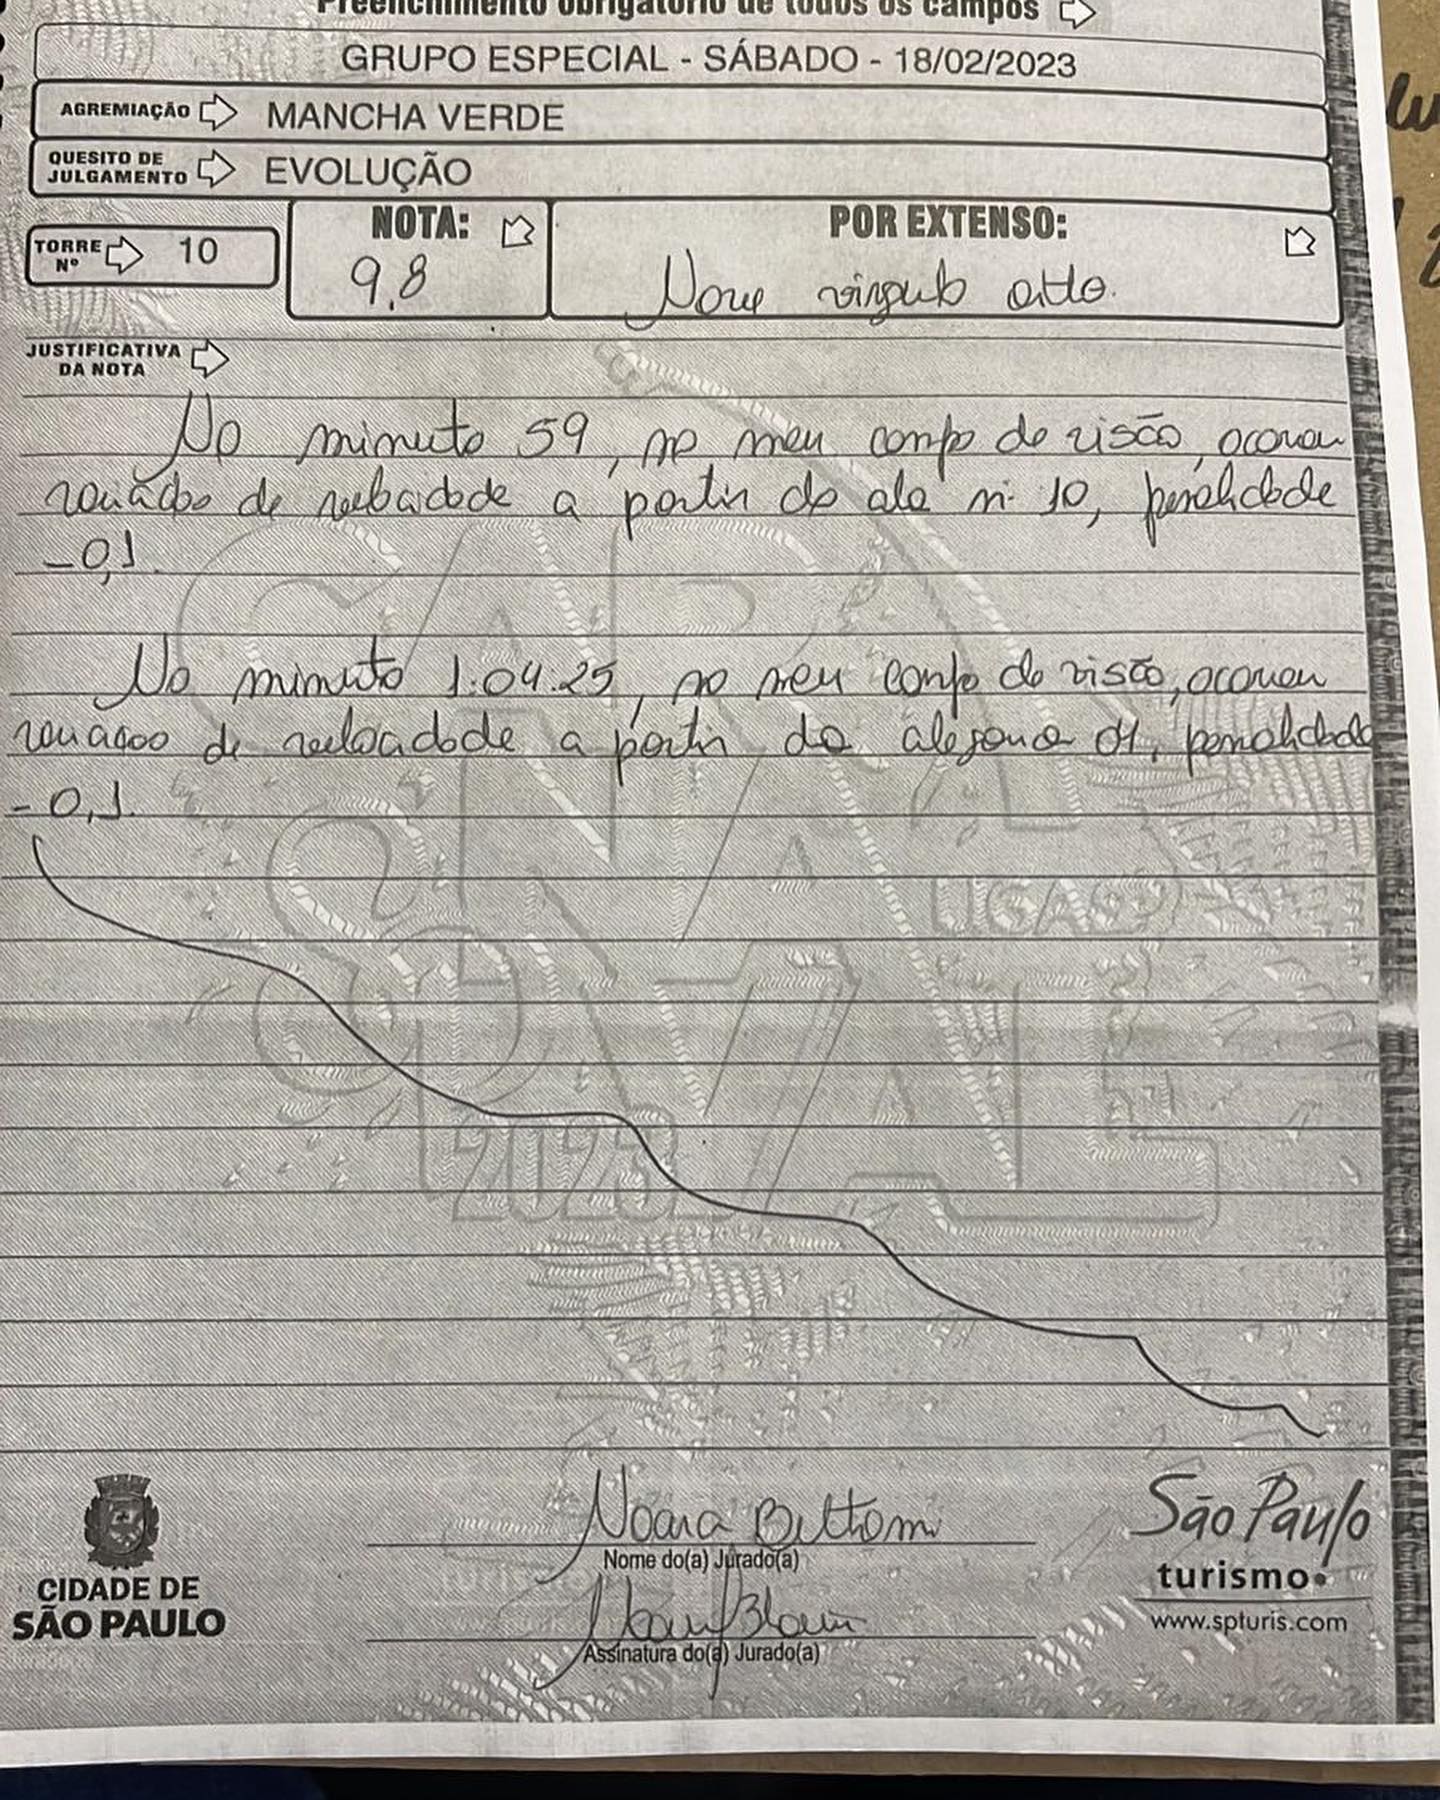 Preenchimento obrigatório de todos os campos
GRUPO ESPECIAL - SÁBADO - 18/02/2023
AGREMIAÇÃO MANCHA VERDE
QUESITO DE JULGAMENTO EVOLUÇÃO
TORRE Nº 10
NOTA: 9,8
POR EXTENSO: Nove vírgula oito.
JUSTIFICATIVA DA NOTA
No minuto 59, no meu campo de visão, ocorreu
variação de velocidade a partir da ala nº 10, penalidade
-0,1.
No minuto 1:04:25, no meu campo de visão, ocorreu
variação de velocidade a partir do alegoria 01, penalidade
-0,1.
CARNAVAL
SP
2023
LIGASP
Noara Beltrami
Nome do(a) Jurado(a)
Assinatura do(a) Jurado(a)
CIDADE DE
SÃO PAULO
São Paulo
turismo
www.spturis.com